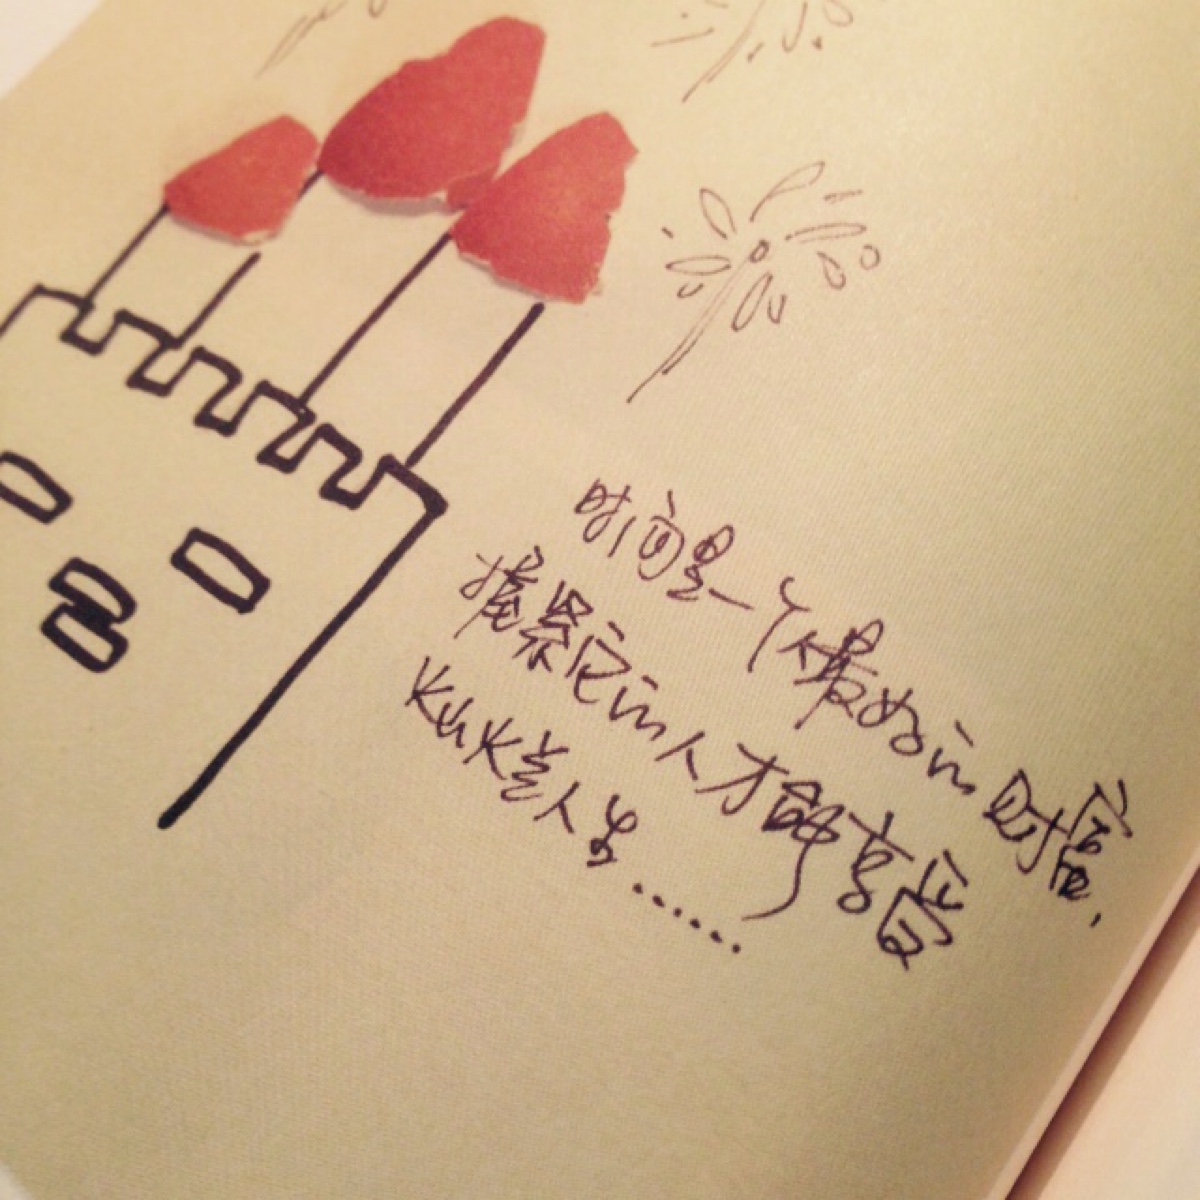 时间是一个最好的财富,
握紧它的人才能享受
灿烂人生......